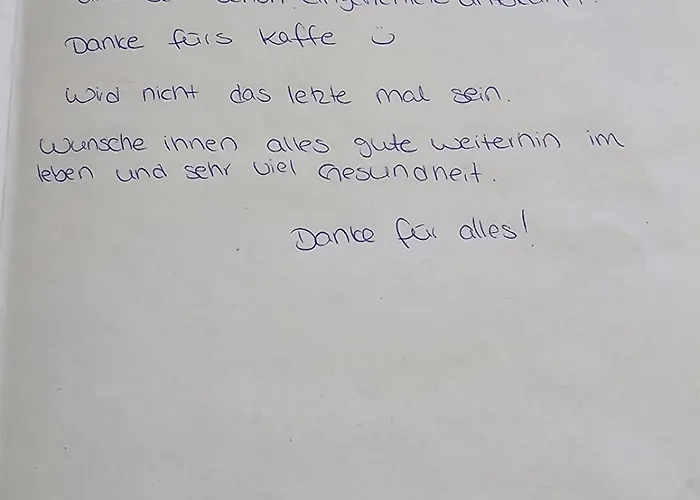 Danke fürs Kaffe ü
wird nicht das letzte mal sein.
wünsche ihnen alles gute weiterhin im
leben und sehr viel Gesundheit.
Danke für alles!